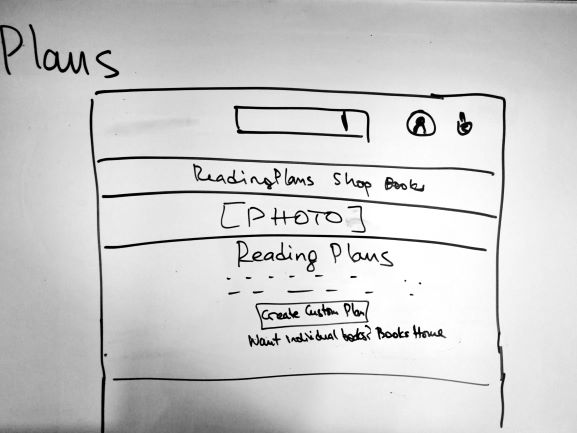 Plans
ReadingPlans Shop Books
[PHOTO]
Reading Plans
Create Custom Plan
Want Individual books? Books Home